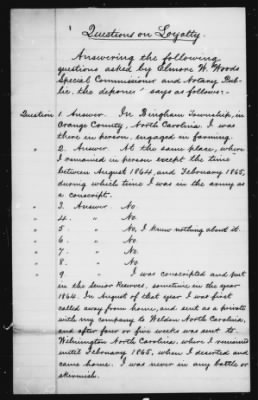 Questions on Loyalty.
Answering the following
questions asked by Elmore W. Woods
Special Commissioner and Notary Pub-
lic, the deponer says as follows:-
Question 1 Answer. In Bingham Township, in
Orange County, North Carolina. I was
there in person, engaged in farming.
" 2. Answer. At the same place, where
I remained in person except the time
between August 1864, and February 1865,
during which time I was in the army as
a conscript.
" 3. Answer No.
" 4. " No.
" 5 " No, I know nothing about it.
" 6. " No.
" 7. " No.
" 8. " No.
" 9. " I was conscripted and put
in the Senior Reserves, sometime in the year
1864. In August of that year I was first
called away from home, and sent as a private
with my company to Weldon North Carolina,
and after four or five weeks was sent to
Wilmington North Carolina, where I remained
until February 1865, when I deserted and
came home. I was never in any battle or
skirmish.